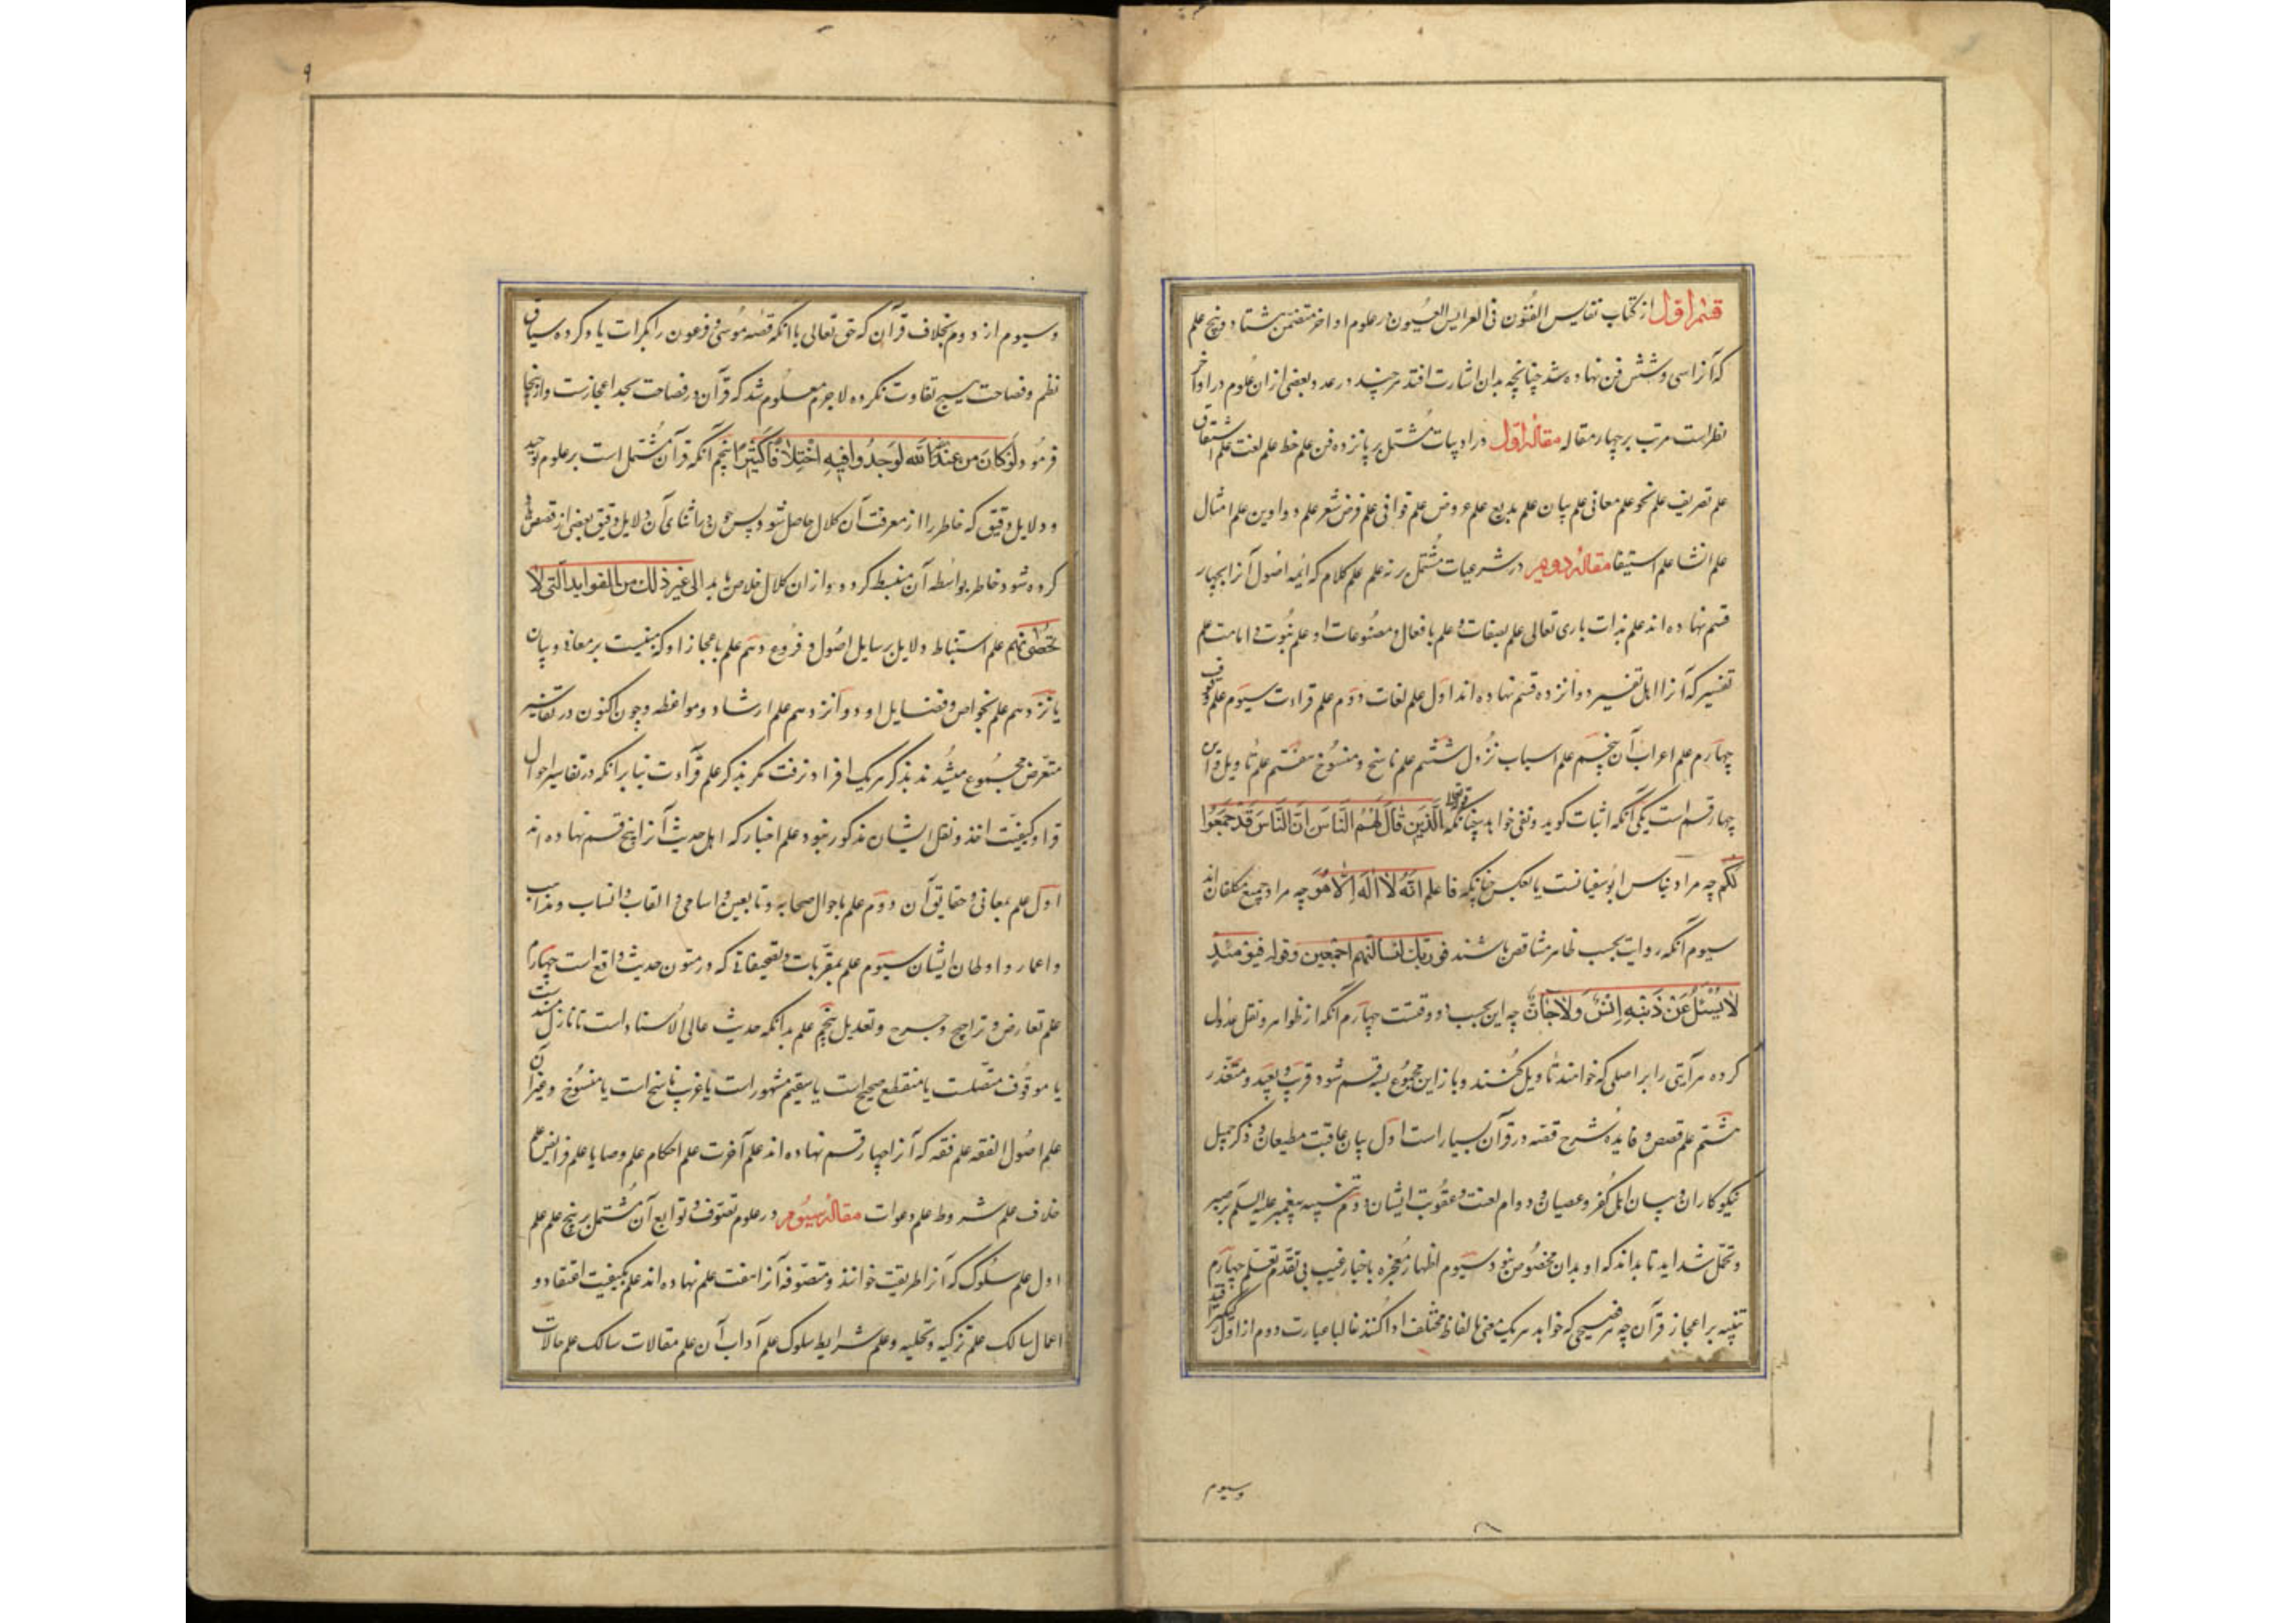 قسم اول از کتاب نفایس الفنون فی العرایس العیون در علوم اواخر متضمن هشتاد و پنج علم
که آنرا سی و شش فن نهاده شد چنانچه بدان اشارت افتد هر چند در عدد بعضی ازان علوم در اواخر
نظر است مرتب بر چهار مقاله مقاله اول در ادبیات مشتمل بر پانزده فن علم خط علم لغت علم اشتقاق
علم تصریف علم نحو علم معانی علم بیان علم بدیع علم عروض علم قوافی علم قرض شعر علم دواوین علم امثال
علم انشا علم استیفا مقاله دوم در شرعیات مشتمل بر نه علم علم کلام که ائمه اصول آنرا بچهار
قسم نهاده اند علم بذات باری تعالی علم بصفات و علم بافعال و مصنوعات او علم نبوت و امامت علم
تفسیر که آنرا اهل تفسیر دوانزده قسم نهاده اند اول علم لغات دوم علم قراءت سیوم علم وقوف
چهارم علم اعراب آن پنجم علم اسباب نزول ششم علم ناسخ و منسوخ هفتم علم تاویل و آن
چهار قسم است یکی آنکه اثبات گوید و نفی خواهد چنانکه الَّذین قال لهم النّاس انّ النّاس قد جمعوا
لکم چه مراد بناس ابو سفیانست یا بعکس چنانکه فاعلم انّه لا اله الّا هو چه مراد جمیع مکلفان اند
سیوم آنکه روایت بحسب ظاهر متناقض باشند فوربک لنسالنهم اجمعین و قوله فیومئذ
لا یسئل عن ذنبه انس ولا جانّ چه این بحسب دو وقتست چهارم آنکه از ظواهر و نقل عدول
کرده هر آیتی را بر اصلی که خوانند تاویل کنند و باز این مجموع بسه قسم شود قریب و بعید و متعذر
هشتم علم قصص و فایده شرح قصه در قرآن بسیار است اول بیان عاقبت مطیعان و ذکر جمیل
نیکوکاران و بیان اهل کفر و عصیان و دوام لعنت و عقوبت ایشان دوم تنبیه پیغمبر علیه السلم بر صبر
و تحمل شداید تا بداند که او بدان مخصوص نبود سیوم اظهار معجزه باخبار غیب بی تقدم تعلم چهارم
تنبیه بر اعجاز قرآن چه هر فصیحی که خواهد هر یک معنی بالفاظ مختلف ادا کند غالبا عبارت دوم از اول
وسیوم
۹
و سیوم از دوم بخلاف قرآن که حق تعالی با آنکه قصه موسی و فرعون را بکرات یاد کرده سیاق
نظم و فصاحت هیچ تفاوت نکرده لاجرم معلوم شد که قرآن در فصاحت بحد اعجازست و ازینجا
فرمود ولو کان من عند الله لوجدوا فیه اختلافا کثیرا پنجم آنکه قرآن مشتمل است بر علوم توحید
و دلایل دقیق که خاطر را از معرفت آن کلال حاصل شود پس چون در اثنای آن دلایل دقیق بعضی از قصص
کرده شود خاطر بواسطه آن منبسط گردد و ازان کلال خلاص یابد الی غیر ذلک من الفواید التی لا
تحصی نهم علم استنباط دلایل بر مسایل اصول و فروع دهم علم باعجاز او که مبنیست بر معانی و بیان
یانزدهم علم بخواص و فضایل او دوانزدهم علم ارشاد و مواعظ و چون اکنون در تفاسیر
متعرض مجموع میشدند بذکر هر یک افراد نرفت مگر بذکر علم قراءت بنابرآنکه در تفاسیر احوال
قرا و کیفیت اخذ و نقل ایشان مذکور نبود علم اخبار که اهل حدیث آنرا پنج قسم نهاده اند
اول علم بمعانی و حقایق آن دوم علم باحوال صحابه و تابعین و اسامی و القاب و انساب و مذاهب
و اعمار و اوطان ایشان سیوم علم بمقربات و تصحیفاتی که در متون حدیث واقع است چهارم
علم تعارض و تراجیح و جرح و تعدیل پنجم علم بدانکه حدیث عالی الاسناد است تا نازل مسندست
یا موقوف متصلست یا منقطع صحیح است یا سقیم مشهور است یا غریب ناسخ است یا منسوخ و غیر آن
علم اصول الفقه علم فقه که آنرا چهار قسم نهاده اند علم آخرت علم احکام علم وصایا علم فرایض علم
خلاف علم شروط علم دعوات مقاله سیوم در علوم تصوف و توابع آن مشتمل بر پنج علم علم
اول علم سلوک که آنرا طریقت خوانند و متصوفه آنرا هفت علم نهاده اند علم بکیفیت اعتقاد و
اعمال سالک علم تزکیه و تحلیه و علم شرایط سلوک علم آداب آن علم مقالات سالک علم حالات